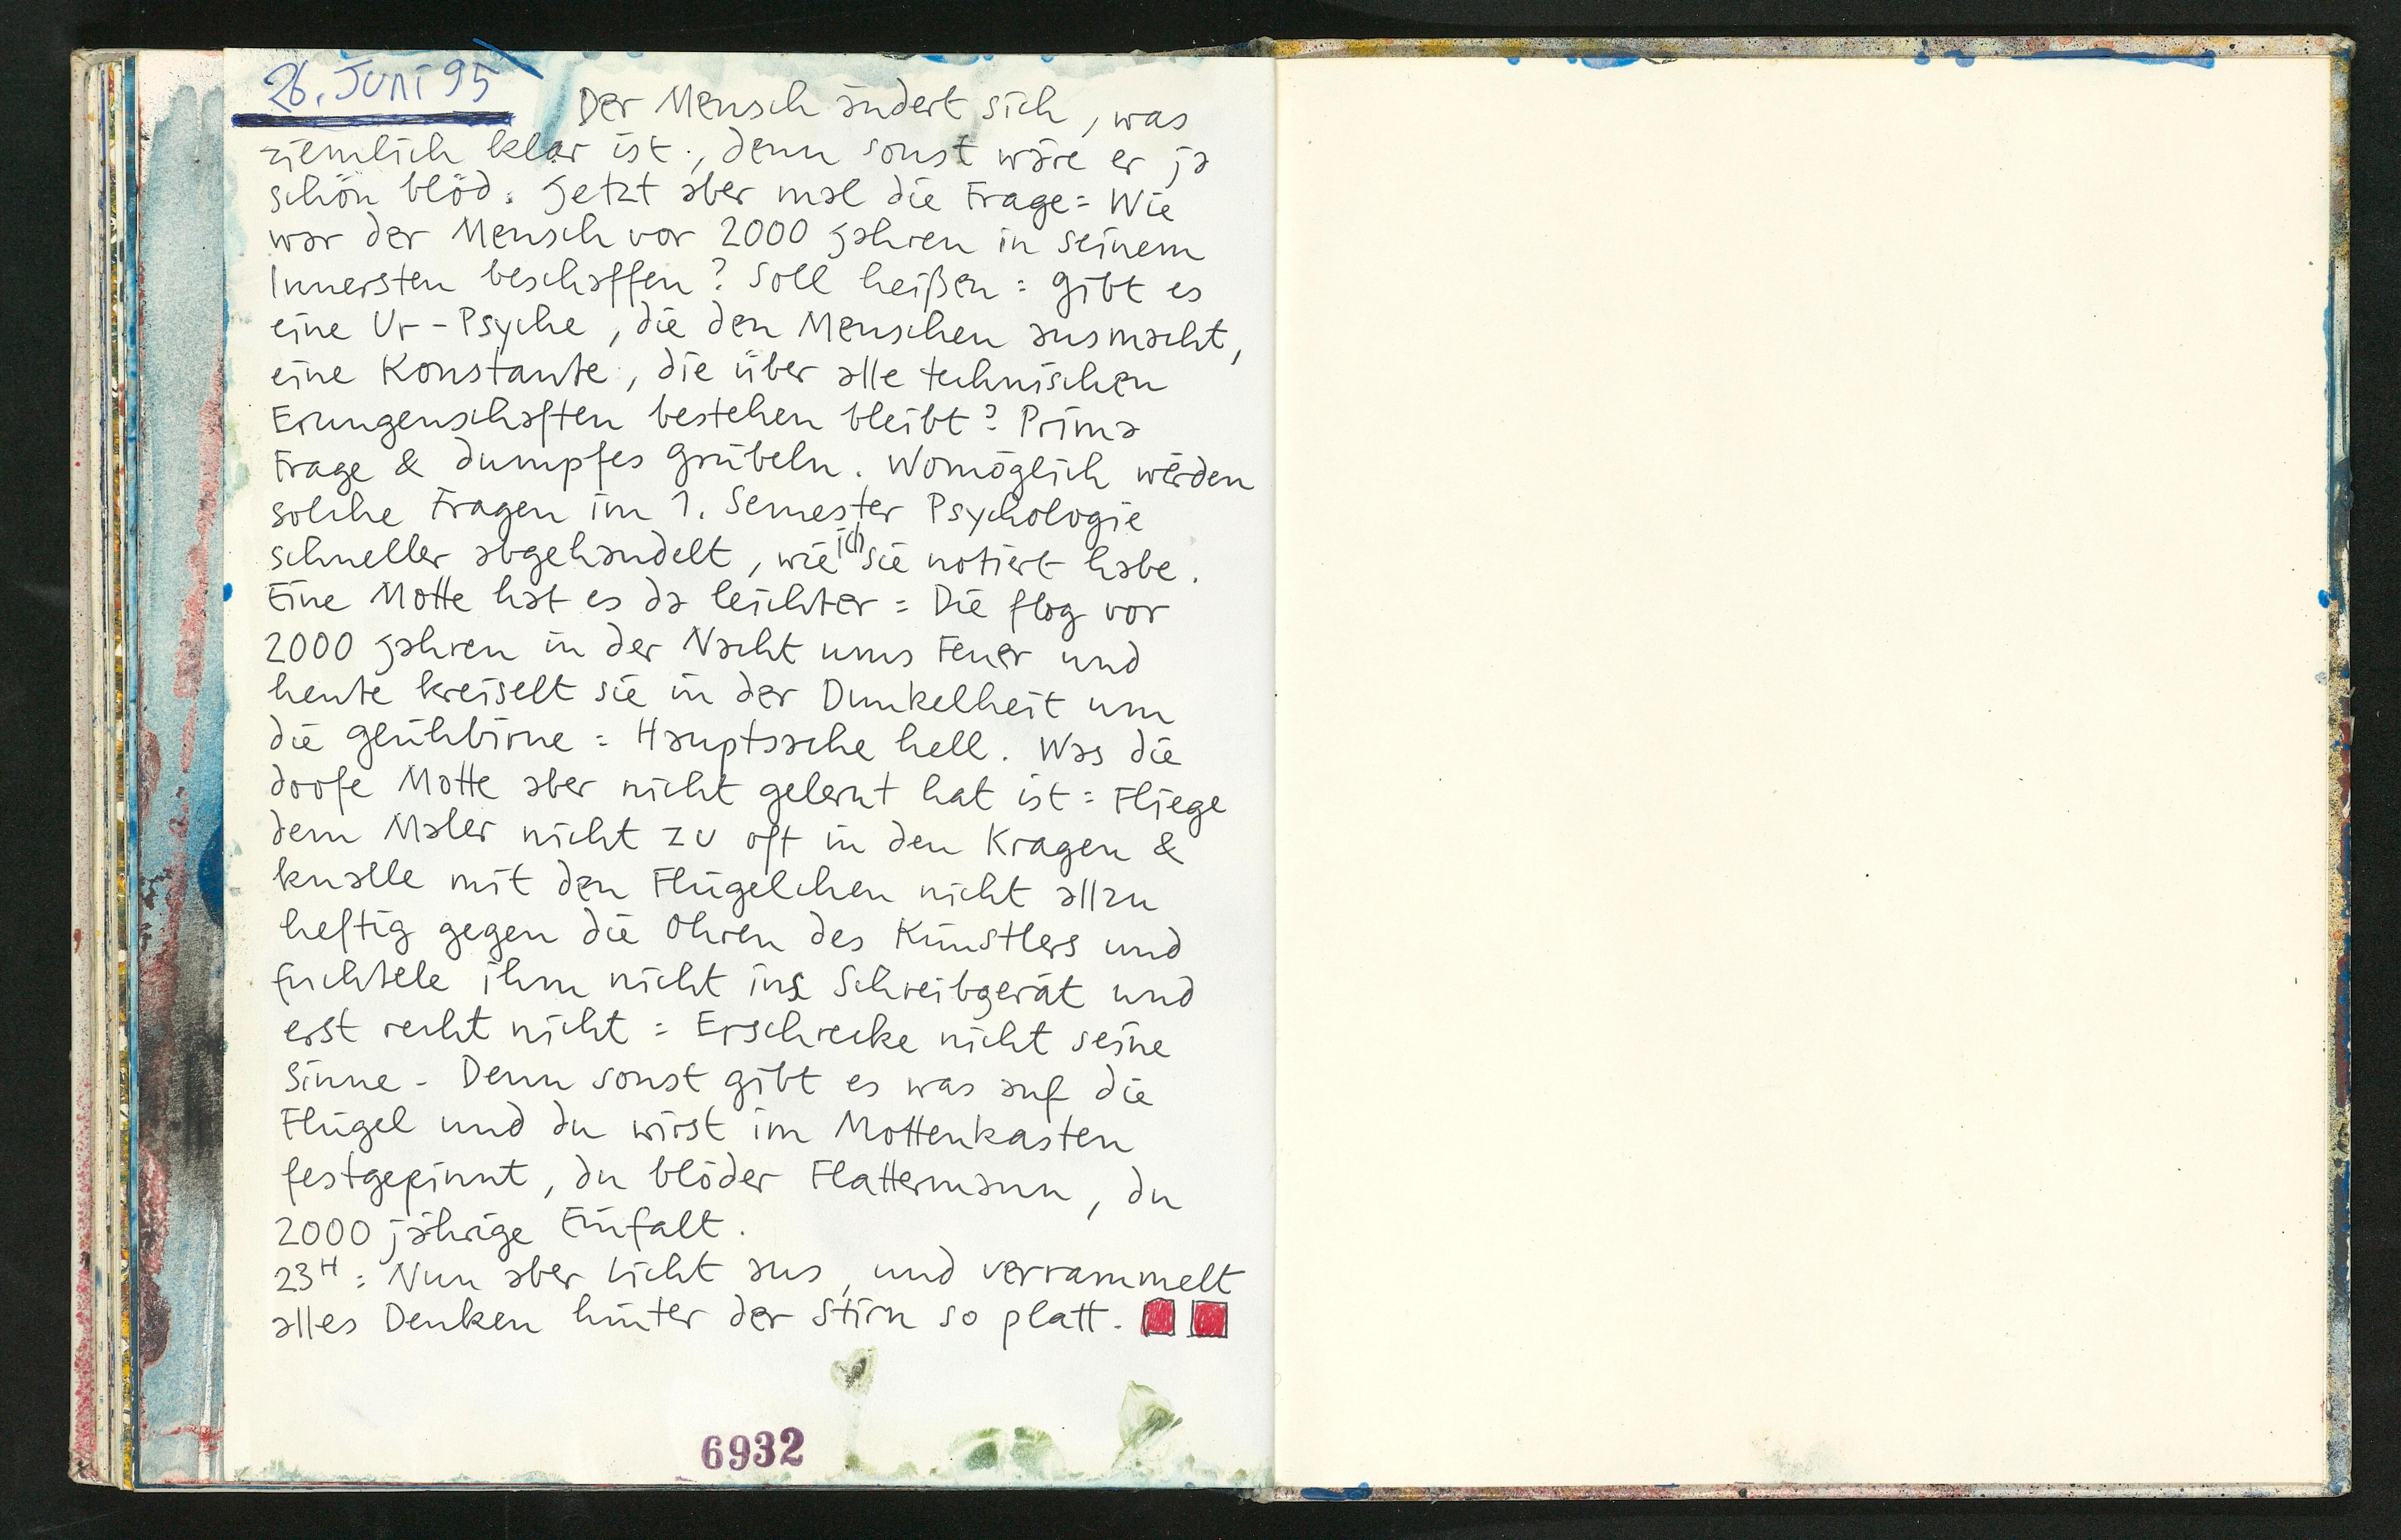 26. Juni 95
Der Mensch ändert sich, was
ziemlich klar ist, denn sonst wäre er ja
schön blöd. Jetzt aber mal die Frage: Wie
war der Mensch vor 2000 Jahren in seinem
Innersten beschaffen? Soll heißen: Gibt es
eine Ur-Psyche, die den Menschen ausmacht,
eine Konstante, die über alle technischen
Erungenschaften bestehen bleibt? Prima
Frage & dumpfes Grübeln. Womöglich werden
solche Fragen im 1. Semester Psychologie
schneller abgehandelt, wie ich sie notiert habe.
Eine Motte hat es da leichter: Die flog vor
2000 Jahren in der Nacht ums Feuer und
heute kreiselt sie in der Dunkelheit um
die Glühbirne: Hauptsache hell. Was die
doofe Motte aber nicht gelernt hat ist: Fliege
dem Maler nicht zu oft in den Kragen &
knalle mit den Flügelchen nicht allzu
heftig gegen die Ohren des Künstlers und
fuchtele ihm nicht ins Schreibgerät und
erst recht nicht: Erschrecke nicht seine
Sinne - Denn sonst gibt es was auf die
Flügel und du wirst im Mottenkasten
festgepinnt, du blöder Flattermann, du
2000 jährige Einfalt.
23H: Nun aber Licht aus, und verrammelt
alles Denken hinter der Stirn so platt.
6932